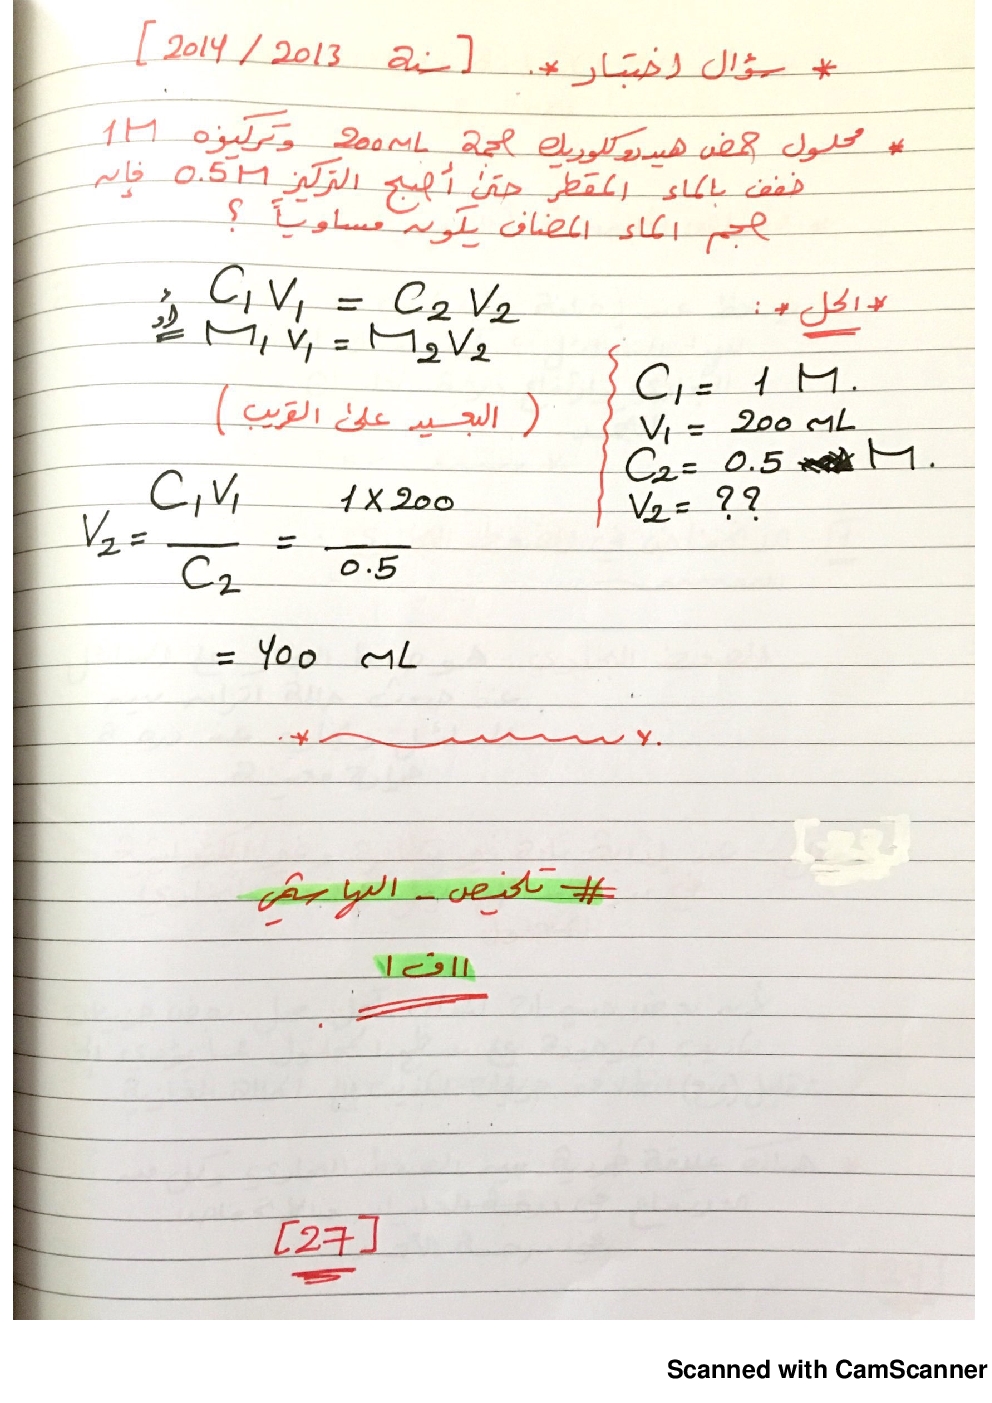 * سؤال اختبار *. [سنة 2013 / 2014]
* محلول حمض هيدروكلوريك حجمه 200 mL وتركيزه 1M
خفف بالماء المقطر حتى أصبح التركيز 0.5M فإن
حجم الماء المضاف يكون مساوياً ؟
* الحل * :
C₁V₁ = C₂V₂
أو
M₁V₁ = M₂V₂
C₁ = 1 M.
V₁ = 200 mL
C₂ = 0.5 M.
V₂ = ??
( البعيد على القريب )
V₂ = C₁V₁ / C₂ = 1X200 / 0.5
= 400 mL
# تلخيص - الهاشمي
[27]
Scanned with CamScanner